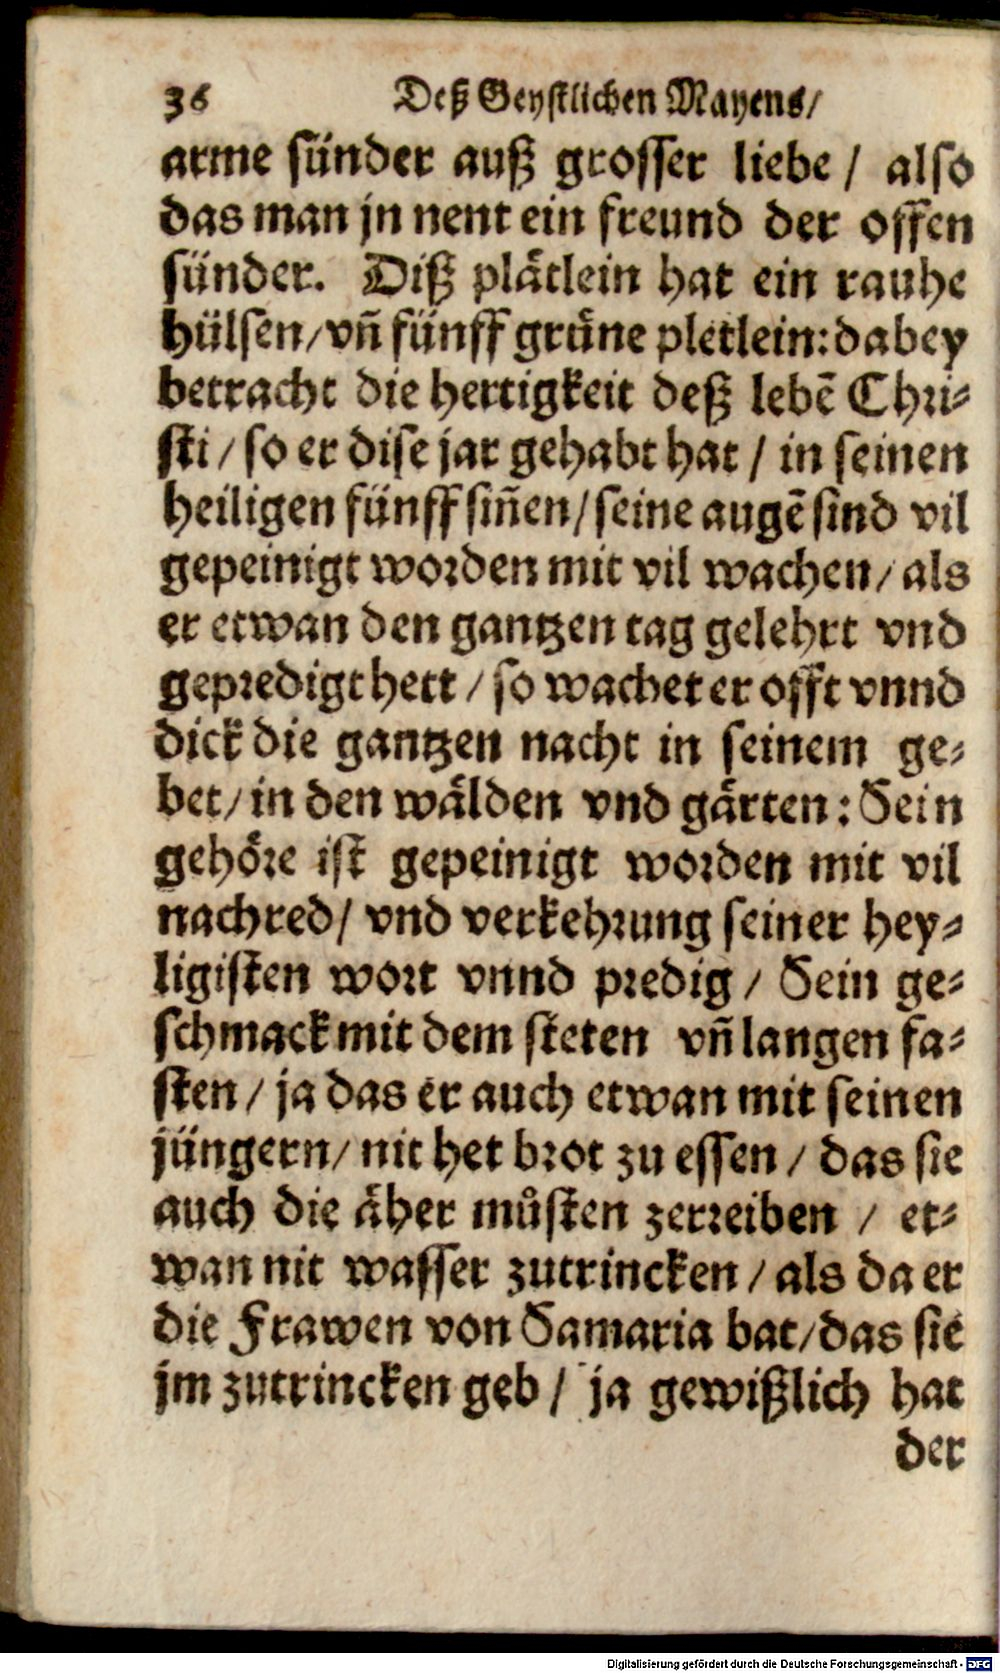 36 Deß Geystlichen Mayens/
arme sünder auß grosser liebe / also
das man jn nent ein freund der offen
sünder. Diß plätlein hat ein rauhe
hülsen/vñ fünff grüne pletlein: dabey
betracht die hertigkeit deß lebē Chri-
sti / so er dise jar gehabt hat / in seinen
heiligen fünff siñen/seine augē sind vil
gepeinigt worden mit vil wachen/ als
er etwan den gantzen tag gelehrt vnd
gepredigt hett / so wachet er offt vnnd
dick die gantzen nacht in seinem ge-
bet/ in den wälden vnd gärten: Sein
gehöre ist gepeinigt worden mit vil
nachred/ vnd verkehrung seiner hey-
ligisten wort vnnd predig / Sein ge-
schmack mit dem steten vñ langen fa-
sten / ja das er auch etwan mit seinen
jüngern/ nit het brot zu essen / das sie
auch die äher můsten zerreiben / et-
wan nit wasser zutrincken / als da er
die Frawen von Samaria bat/das sie
jm zutrincken geb / ja gewißlich hat
der
Digitalisierung gefördert durch die Deutsche Forschungsgemeinschaft - DFG